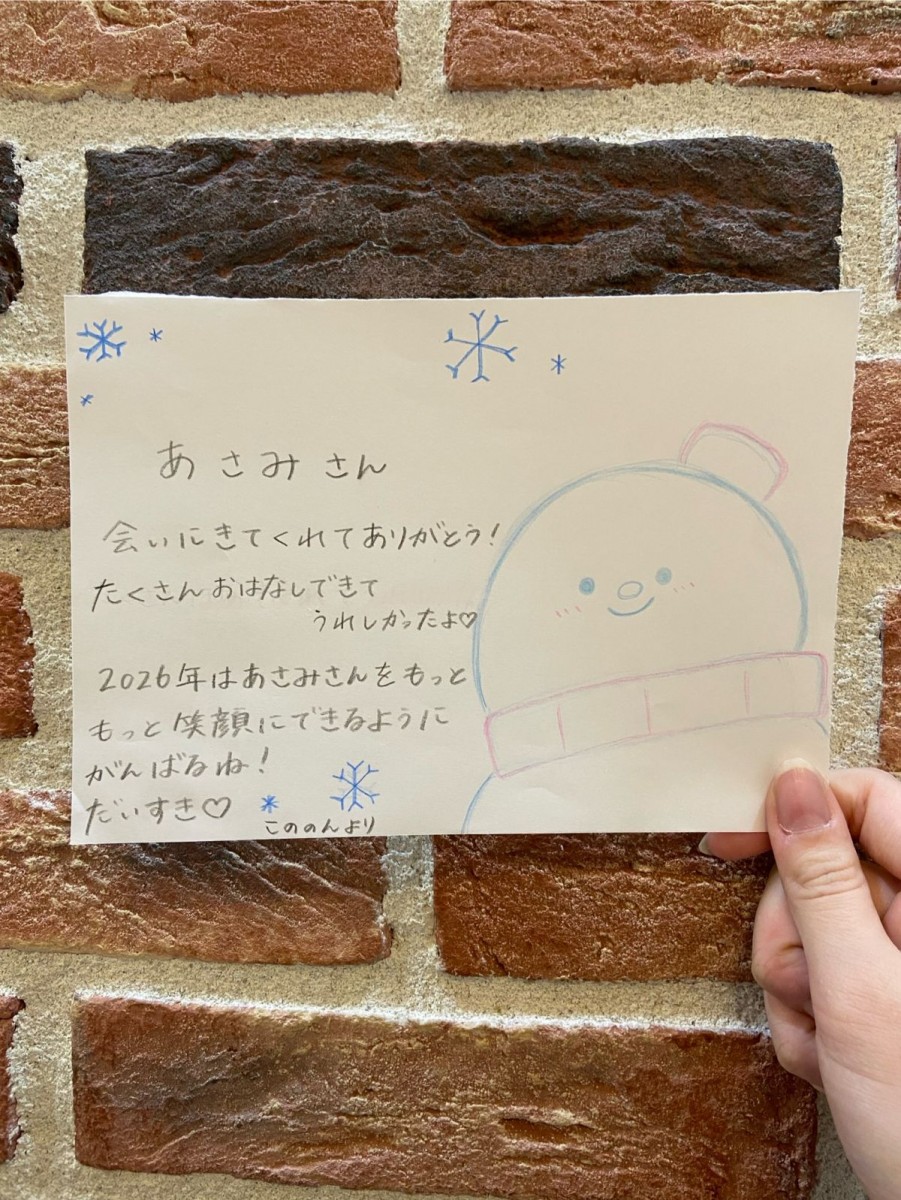 あさみさん
会いにきてくれてありがとう!
たくさんおはなしできて
うれしかったよ♡
2026年はあさみさんをもっと
もっと笑顔にできるように
がんばるね!
だいすき♡
こののんより